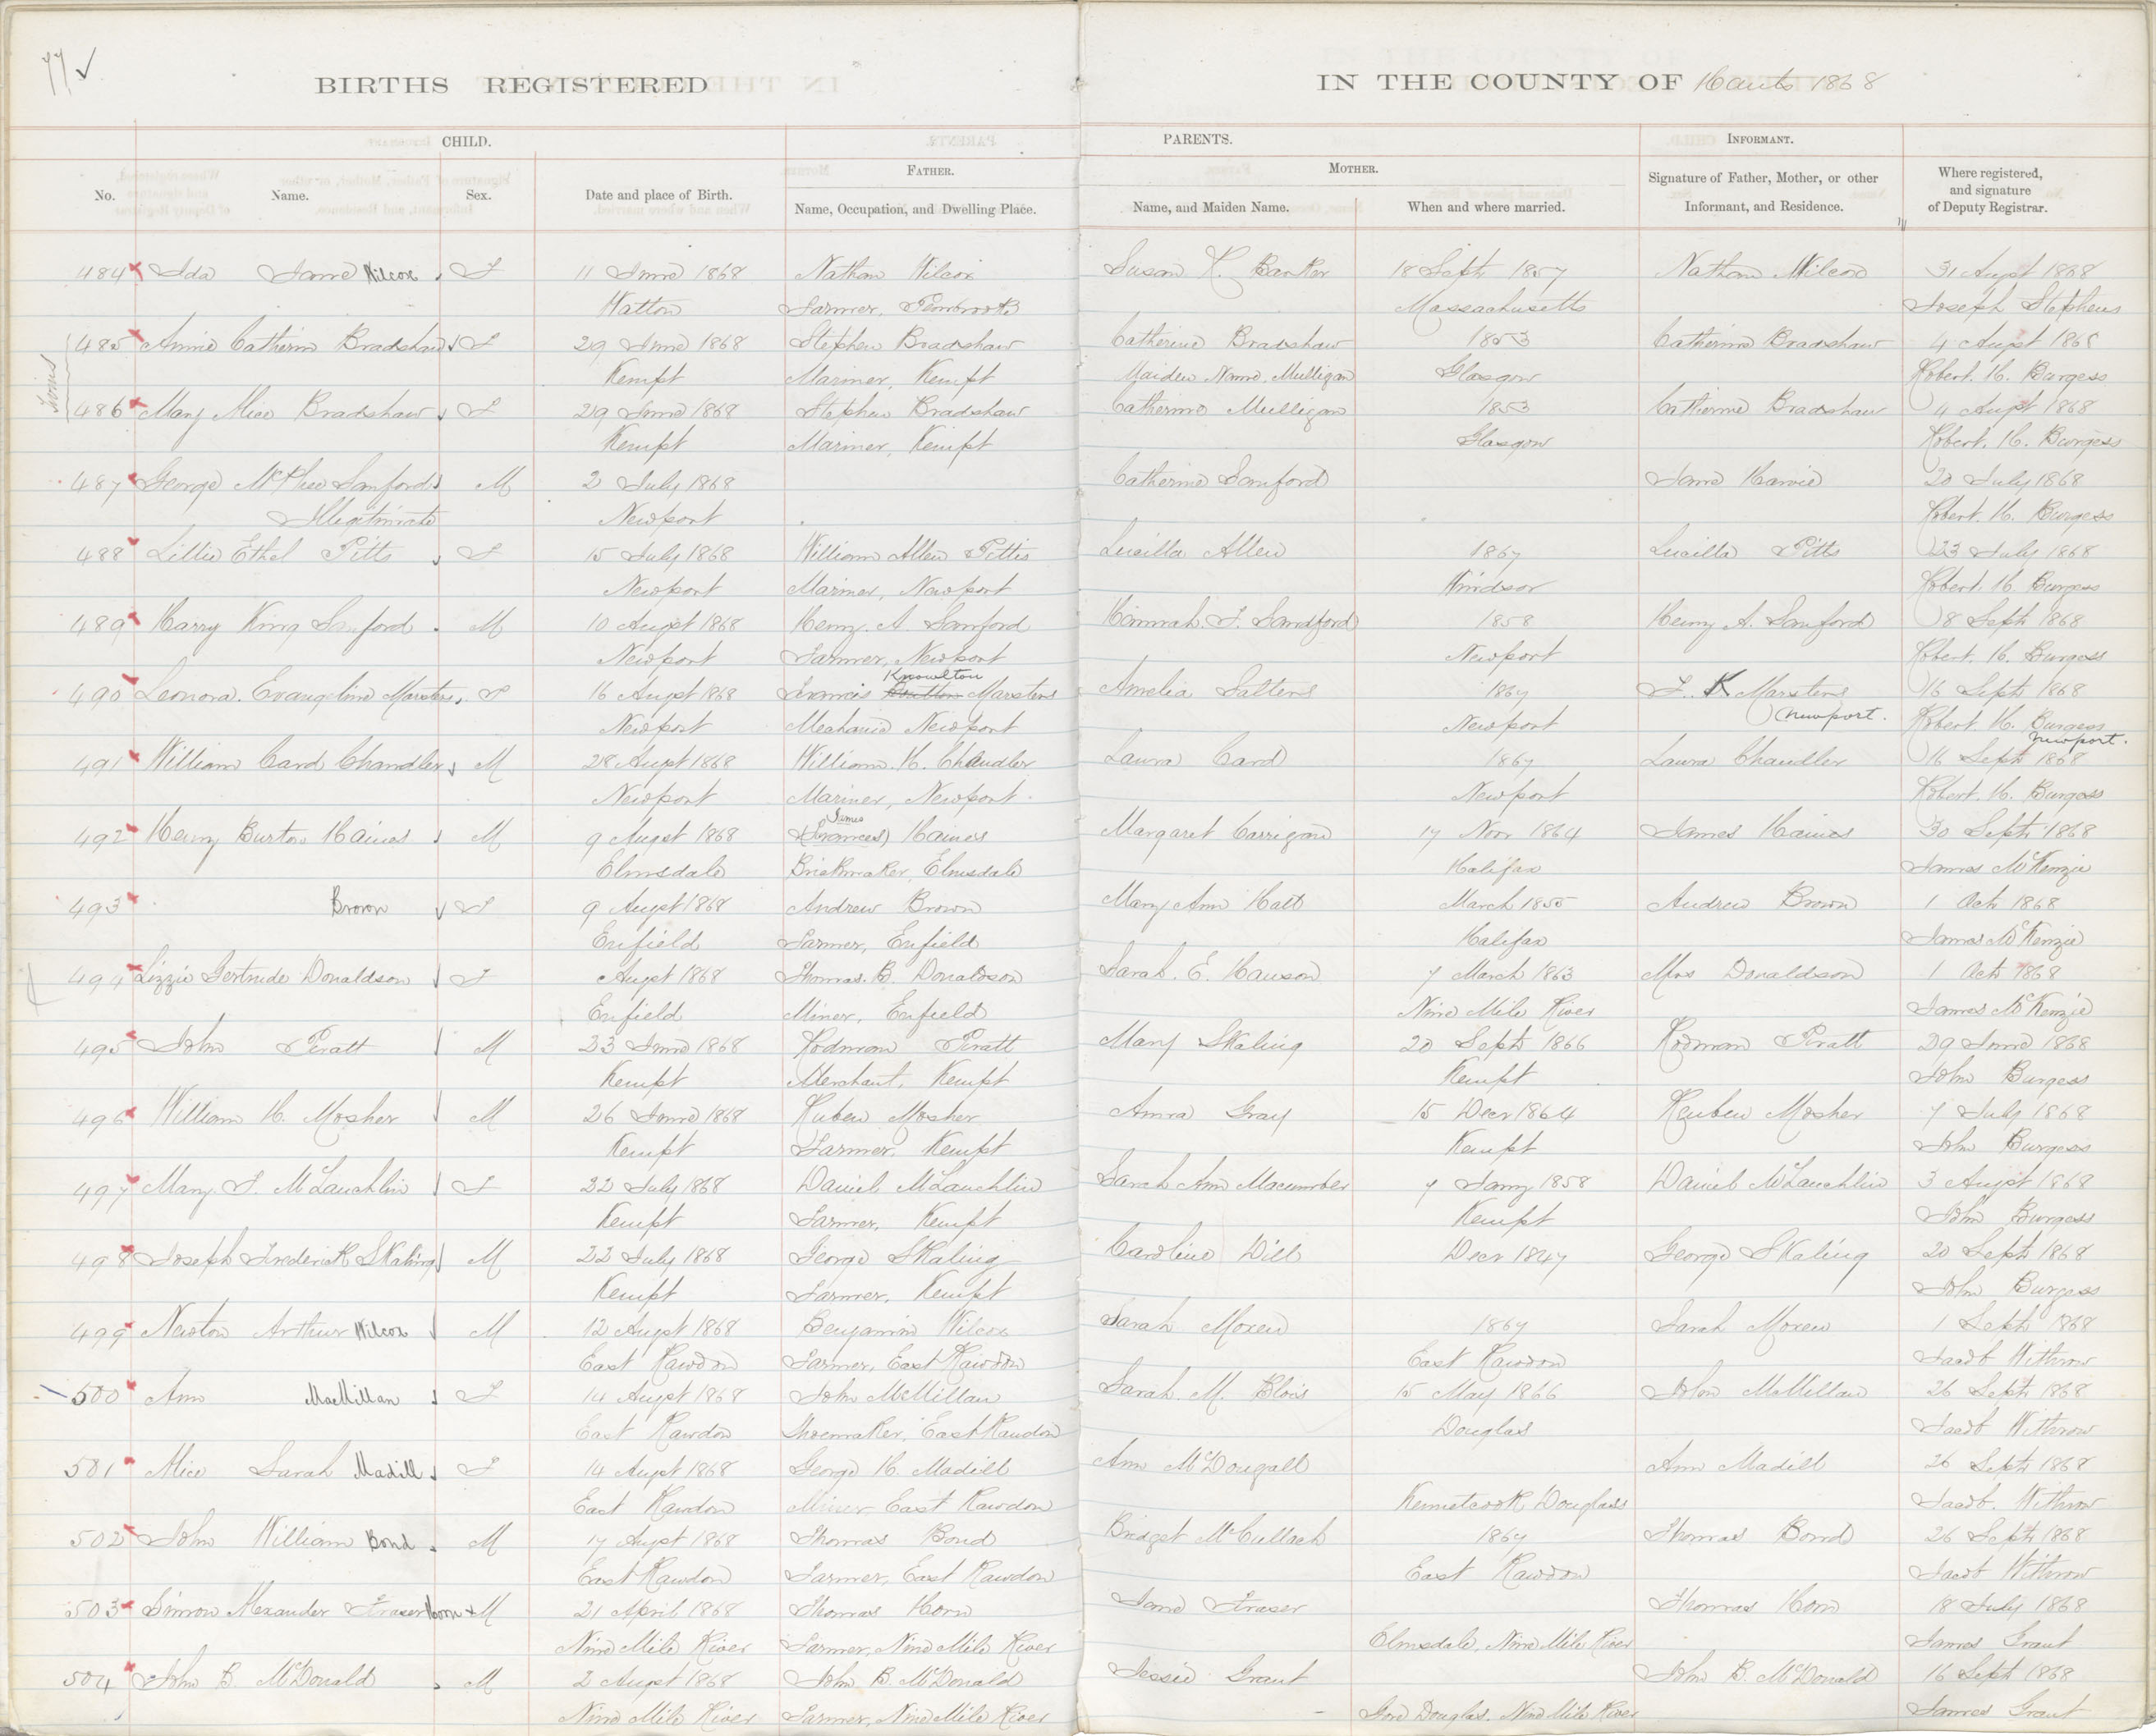 77 ✓
BIRTHS REGISTERED IN THE COUNTY OF Hants 1868
CHILD. PARENTS. INFORMANT.
No. Name. Sex. Date and place of Birth. FATHER. Name, Occupation, and Dwelling Place. MOTHER. Name, and Maiden Name. When and where married. Signature of Father, Mother, or other Informant, and Residence. Where registered, and signature of Deputy Registrar.
484 Ida Jane Wilcox F 11 June 1868 Nathan Wilcox Susan H. Barker 18 Sept 1857 Nathan Wilcox 31 Augst 1868
Walton Farmer, Pembrooke Massachusetts Joseph Stephens
Twins
485 Annie Catherin Bradshaw F 29 June 1868 Stephen Bradshaw Catherine Bradshaw 1853 Catherine Bradshaw 4 Augst 1868
Kempt Mariner, Kempt Maiden Name, Mulligan Glasgow Robert. H. Burgess
486 Mary Alice Bradshaw F 29 June 1868 Stephen Bradshaw Catherine Mulligan 1853 Catherine Bradshaw 4 Augst 1868
Kempt Mariner, Kempt Glasgow Robert. H. Burgess
487 George McPhee Sanford M 2 July 1868 Catherine Sanford Jane Harvie 20 July 1868
Illegitimate Newport Robert. H. Burgess
488 Lillie Ethel Pitts F 15 July 1868 William Allen Pittis Lucilla Allen 1867 Lucilla Pitts 23 July 1868
Newport Mariner, Newport Windsor Robert. H. Burgess
489 Harry King Sanford M 10 Augst 1868 Henry. A. Sanford Hannah. F. Sandford 1858 Henry A. Sanford 8 Sept 1868
Newport Farmer, Newport Newport Robert. H. Burgess
Knowlton
490 Leonora. Evangeline Marsters F 16 Augst 1868 Francis Marsters Amelia Salters 1867 F. K Marsters 16 Sept 1868
Newport Mechanic Newport Newport Newport. Robert. H. Burgess
Newport.
491 William Card Chandler M 28 Augst 1868 William. H. Chandler Laura Card 1867 Laura Chandler 16 Sept 1868
Newport Mariner, Newport Newport Robert. H. Burgess
James
492 Henry Burton Haines M 9 Augst 1868 (Frances) Haines Margaret Carrigan 17 Novr 1864 James Haines 30 Sept 1868
Elmsdale Brickmaker, Elmsdale Halifax James McKenzie
493 Brown F 9 Augst 1868 Andrew Brown Mary Ann Hall March 1855 Andrew Brown 1 Oct 1868
Enfield Farmer, Enfield Halifax James McKenzie
494 Lizzie Gertrude Donaldson F Augst 1868 Thomas. B. Donaldson Sarah. E. Hanson 7 March 1863 Mrs Donaldson 1 Oct 1868
Enfield Miner, Enfield Nine Mile River James McKenzie
495 John Pratt M 23 June 1868 Rodman Pratt Mary Skaling 20 Sept 1866 Rodman Pratt 29 June 1868
Kempt Merchant, Kempt Kempt John Burgess
496 William H. Mosher M 26 June 1868 Ruben Mosher Anna Gray 15 Decr 1864 Reuben Mosher 7 July 1868
Kempt Farmer, Kempt Kempt John Burgess
497 Mary. F. McLauchlin F 22 July 1868 Daniel McLauchlin Sarah Ann Macumber 7 Jany 1858 Daniel McLauchlin 3 Augst 1868
Kempt Farmer, Kempt Kempt John Burgess
498 Joseph Frederick Skaling M 22 July 1868 George Skaling Caroline Dill Decr 1847 George Skaling 20 Sept 1868
Kempt Farmer, Kempt John Burgess
499 Newton Arthur Wilcox M 12 Augst 1868 Benjamin Wilcox Sarah Moxen 1867 Sarah Moxen 1 Sept 1868
East Rawdon Farmer, East Rawdon East Rawdon Jacob Withrow
500 Ann MacMillan F 14 Augst 1868 John McMillan Sarah. M. Blois 15 May 1866 John McMillan 26 Sept 1868
East Rawdon Shoemaker, East Rawdon Douglas Jacob Withrow
501 Alice Sarah Madill F 14 Augst 1868 George H. Madill Ann McDougall Ann Madill 26 Sept 1868
East Rawdon Miner, East Rawdon Kennetcook Douglass Jacob. Withrow
502 John William Bond M 17 Augst 1868 Thomas Bond Bridget McCullach 1867 Thomas Bond 26 Sept 1868
East Rawdon Farmer, East Rawdon East Rawdon Jacob Withrow
503 Simon Alexander Fraser Horn M 21 April 1868 Thomas Horn Jane Fraser Thomas Horn 18 July 1868
Nine Mile River Farmer, Nine Mile River Elmsdale, Nine Mile River James Grant
504 John B. McDonald M 2 Augst 1868 John B. McDonald Jessie Grant John B. McDonald 16 Sept 1868
Nine Mile River Farmer, Nine Mile River Gore Douglas. Nine Mile River James Grant